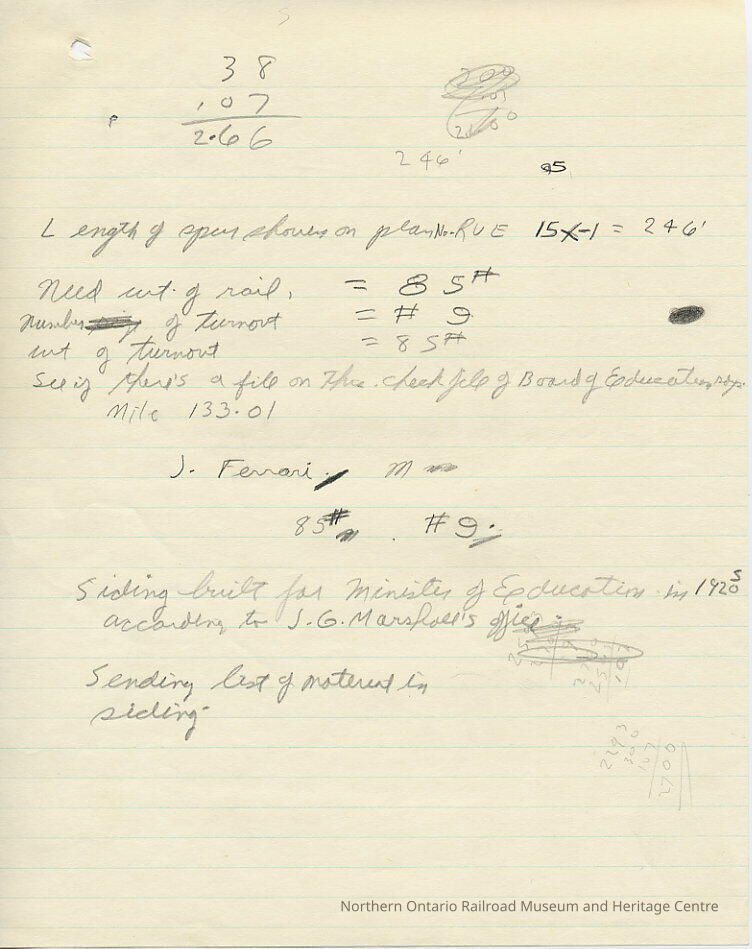 38
107
2.66
300
246'
Length of spur shown on plan No. RUE 15X-1 = 246'
Need wt. of rail, = 85#
number of turnout = # 9
wt of turnout = 85#
See if there's a file on this. check file of Board of Education
Mile 133.01
J. Ferrari. M
85# . #9.
Siding built for Minister of Education in 1920s
according to J.G. Marshall's office
Sending list of material in
siding
2293
300
107
2700
Northern Ontario Railroad Museum and Heritage Centre